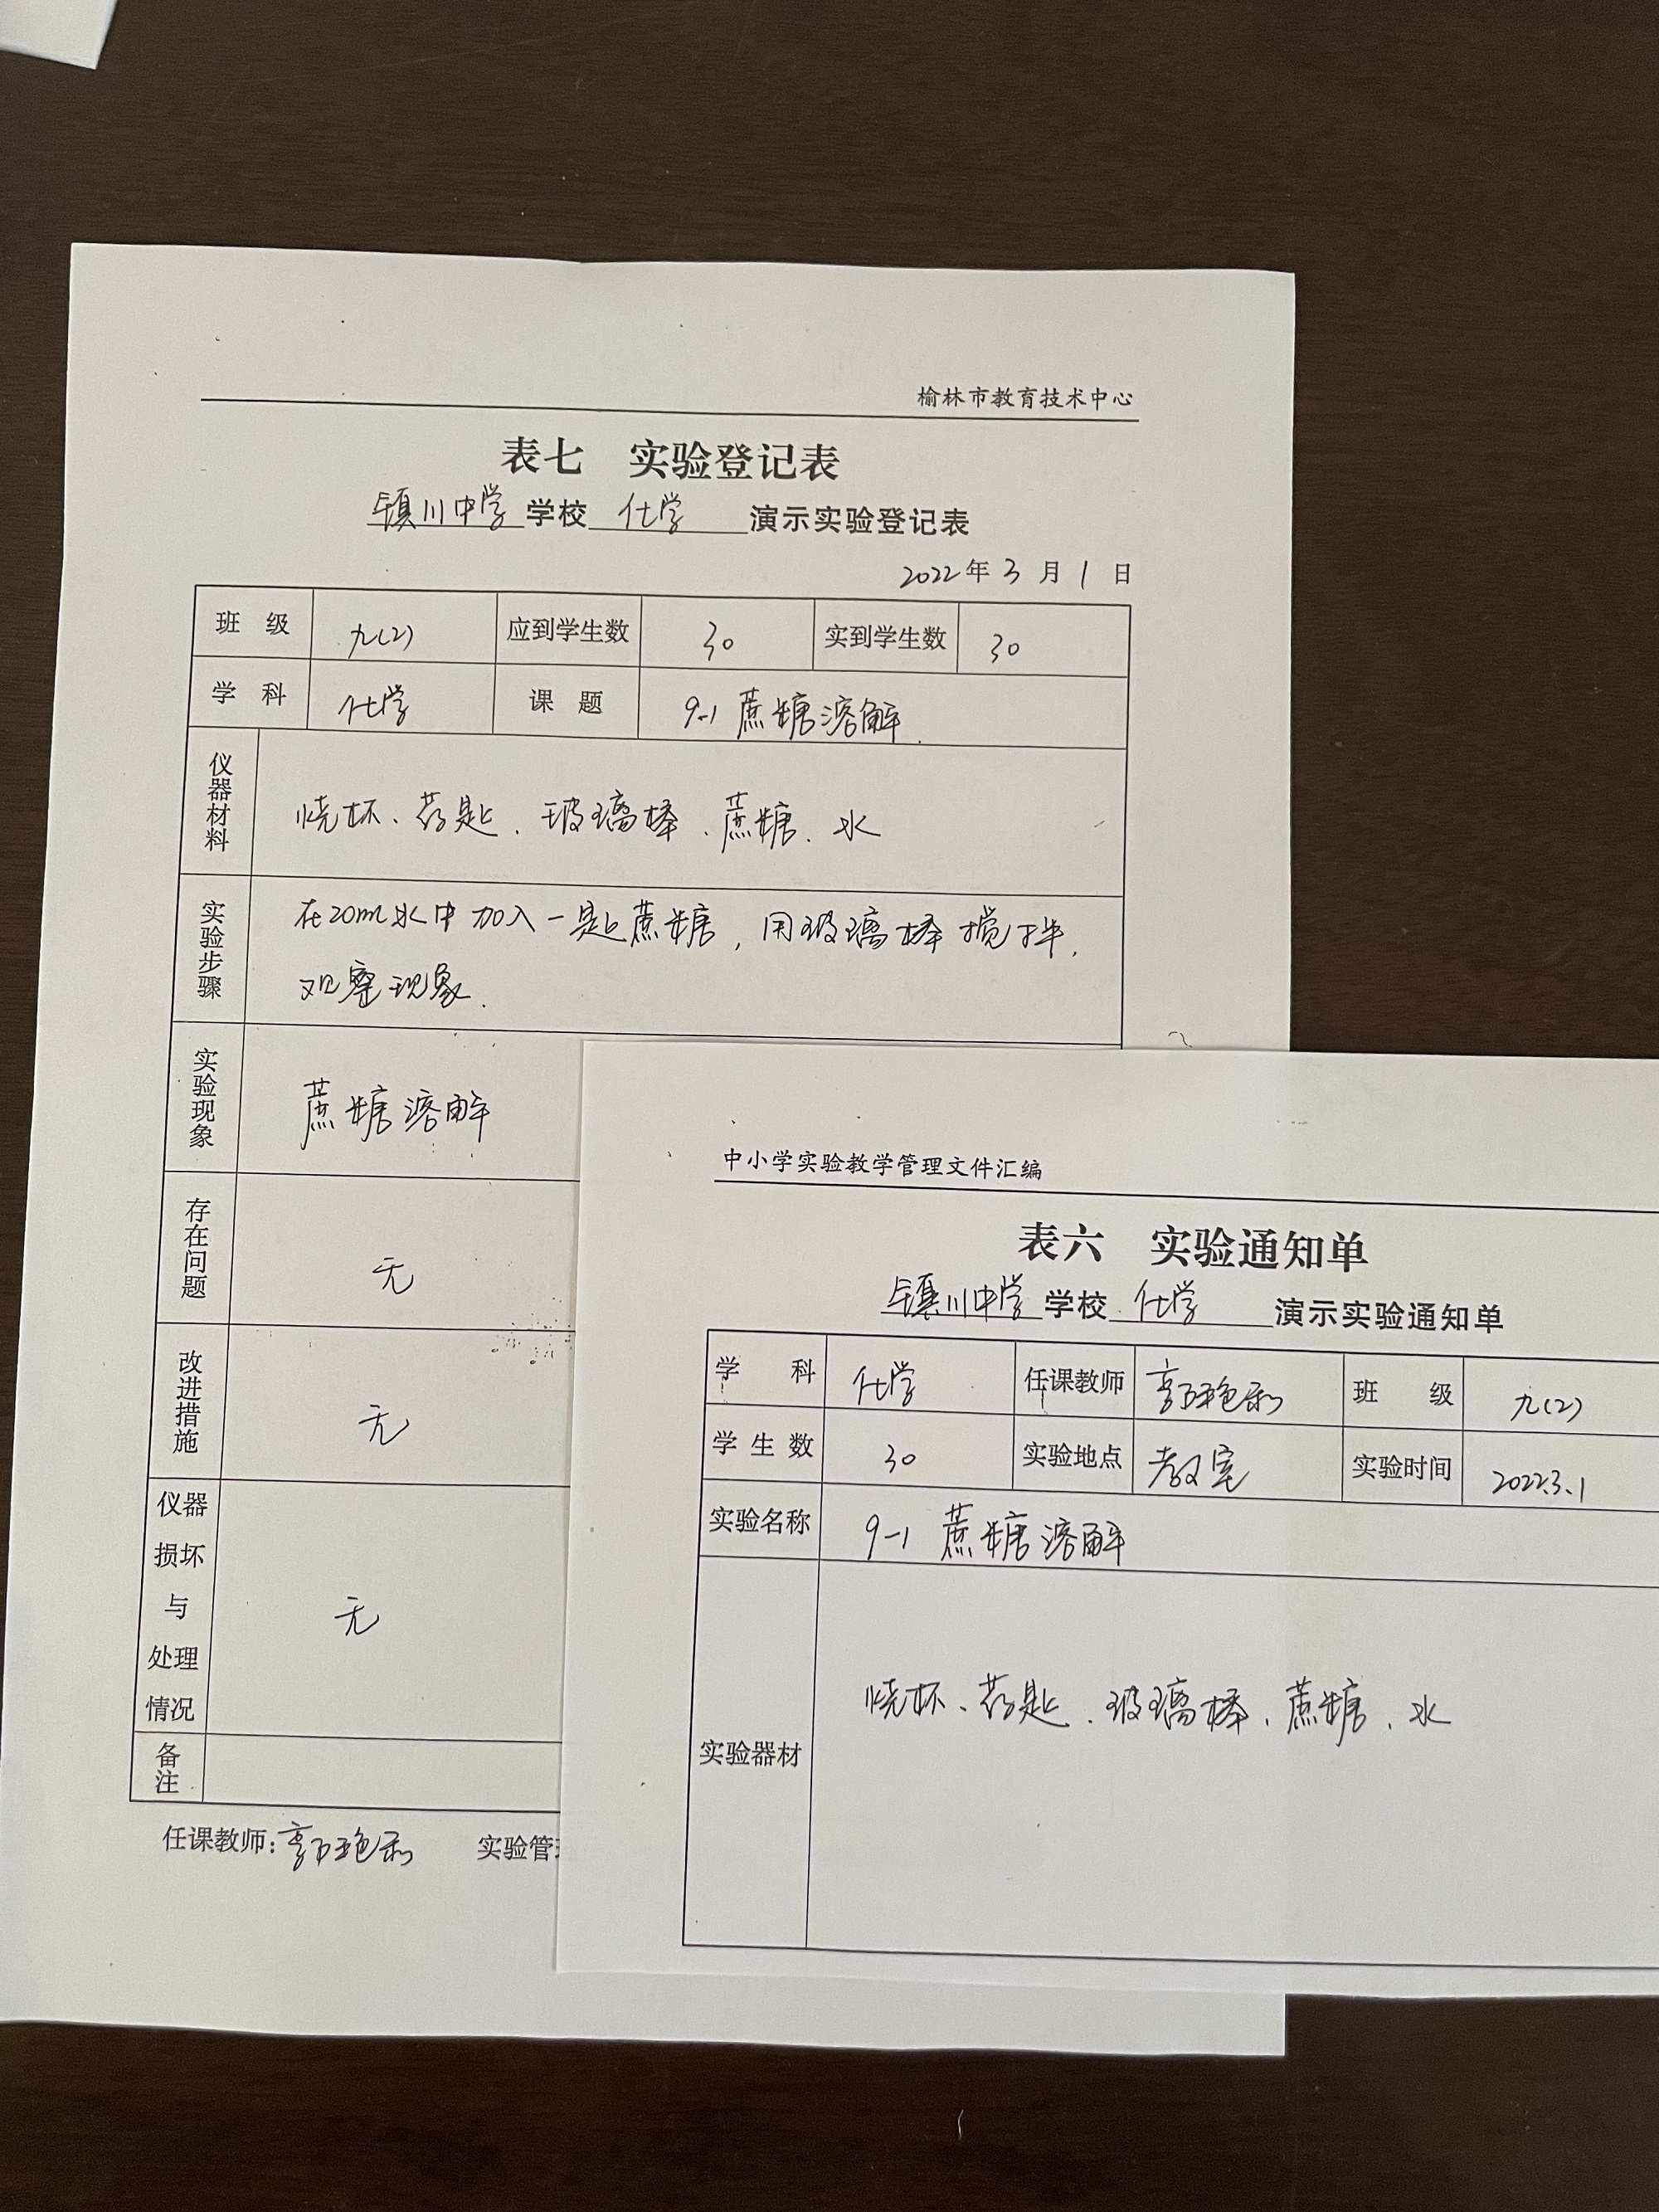 榆林市教育技术中心
表七 实验登记表
镇川中学 学校 化学 演示实验登记表
2022年 3 月 1 日
班 级 九(2) 应到学生数 30 实到学生数 30
学 科 化学 课 题 9-1 蔗糖溶解
仪器材料 烧杯、药匙、玻璃棒、蔗糖、水
实验步骤 在20ml水中加入一匙蔗糖，用玻璃棒搅拌，
观察现象.
实验现象 蔗糖溶解
存在问题 无
改进措施 无
仪器
损坏
与
处理
情况
无
备注
任课教师: 实验管
中小学实验教学管理文件汇编
表六 实验通知单
镇川中学 学校 化学 演示实验通知单
学 科 化学 任课教师 班 级 九(2)
学 生 数 30 实验地点 教室 实验时间 2022.3.1
实验名称 9-1 蔗糖溶解
实验器材 烧杯、药匙、玻璃棒、蔗糖、水